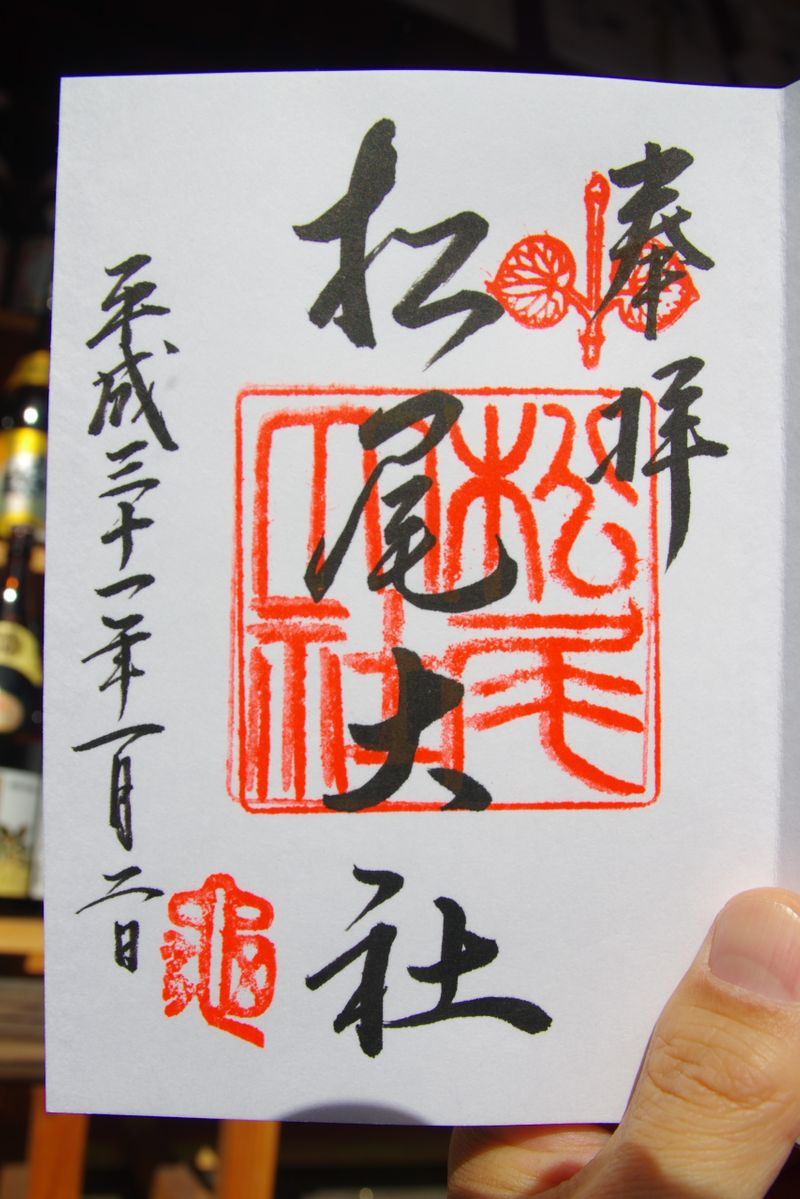 奉拝
松尾大社
松尾大社
平成三十一年一月二日
亀